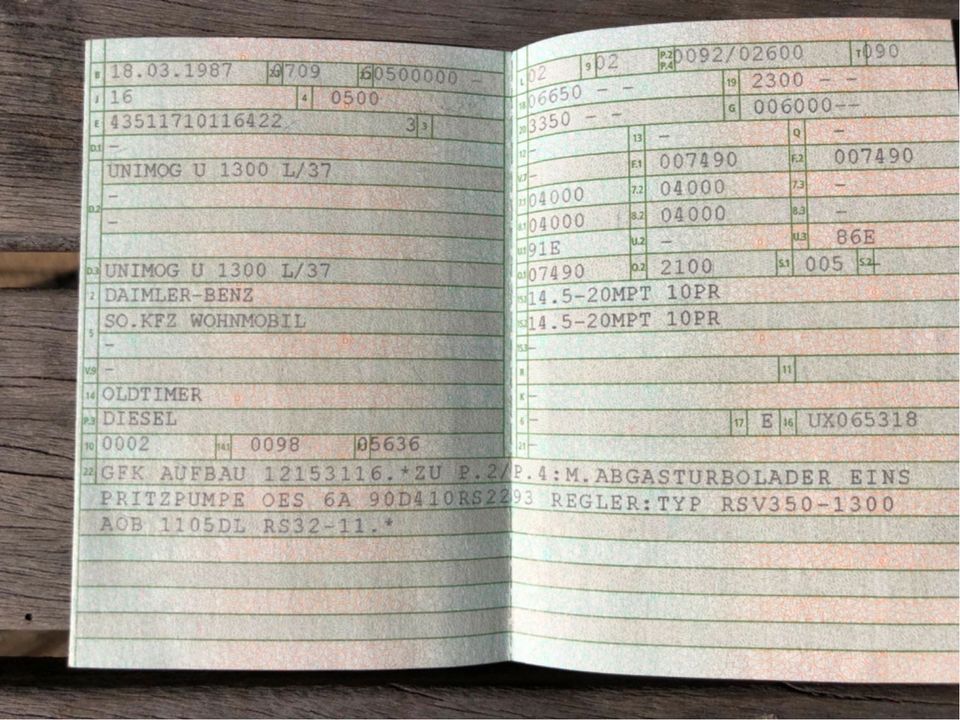 B 18.03.1987 0709 00500000 -
J 16 4 0500
E 43511710116422 3 3
D.1 -
UNIMOG U 1300 L/37
D.2 -
-
D.3 UNIMOG U 1300 L/37
2 DAIMLER-BENZ
5 SO.KFZ WOHNMOBIL
-
V.9 -
14 OLDTIMER
P.3 DIESEL
10 0002 14.1 0098 P.1 05636
L 02 9 02 P.2 P.4 0092/02600 T 090
18 06650 - - 19 2300 - -
20 3350 - - G 006000--
12 - 13 - Q -
V.7 - F.1 007490 F.2 007490
7.1 04000 7.2 04000 7.3 -
8.1 04000 8.2 04000 8.3 -
U.1 91E U.2 - U.3 86E
O.1 07490 O.2 2100 S.1 005 S.2 -
15.1 14.5-20MPT 10PR
15.2 14.5-20MPT 10PR
15.3 -
R 11
K -
6 - 17 E 16 UX065318
21 -
22 GFK AUFBAU 12153116.*ZU P.2/P.4:M.ABGASTURBOLADER EINS
PRITZPUMPE OES 6A 90D410RS2293 REGLER:TYP RSV350-1300
AOB 1105DL RS32-11.*